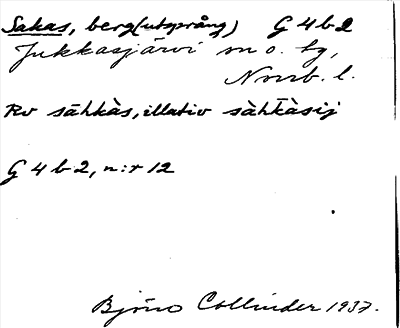 Sakas, berg(utsprång) G 4 b 2
Jukkasjärvi sn o. tg,
Norrb. l.
Rv sāhkàs, illativ sàh̄kàsij
G 4 b 2, n:r 12
Björn Collinder 1937.